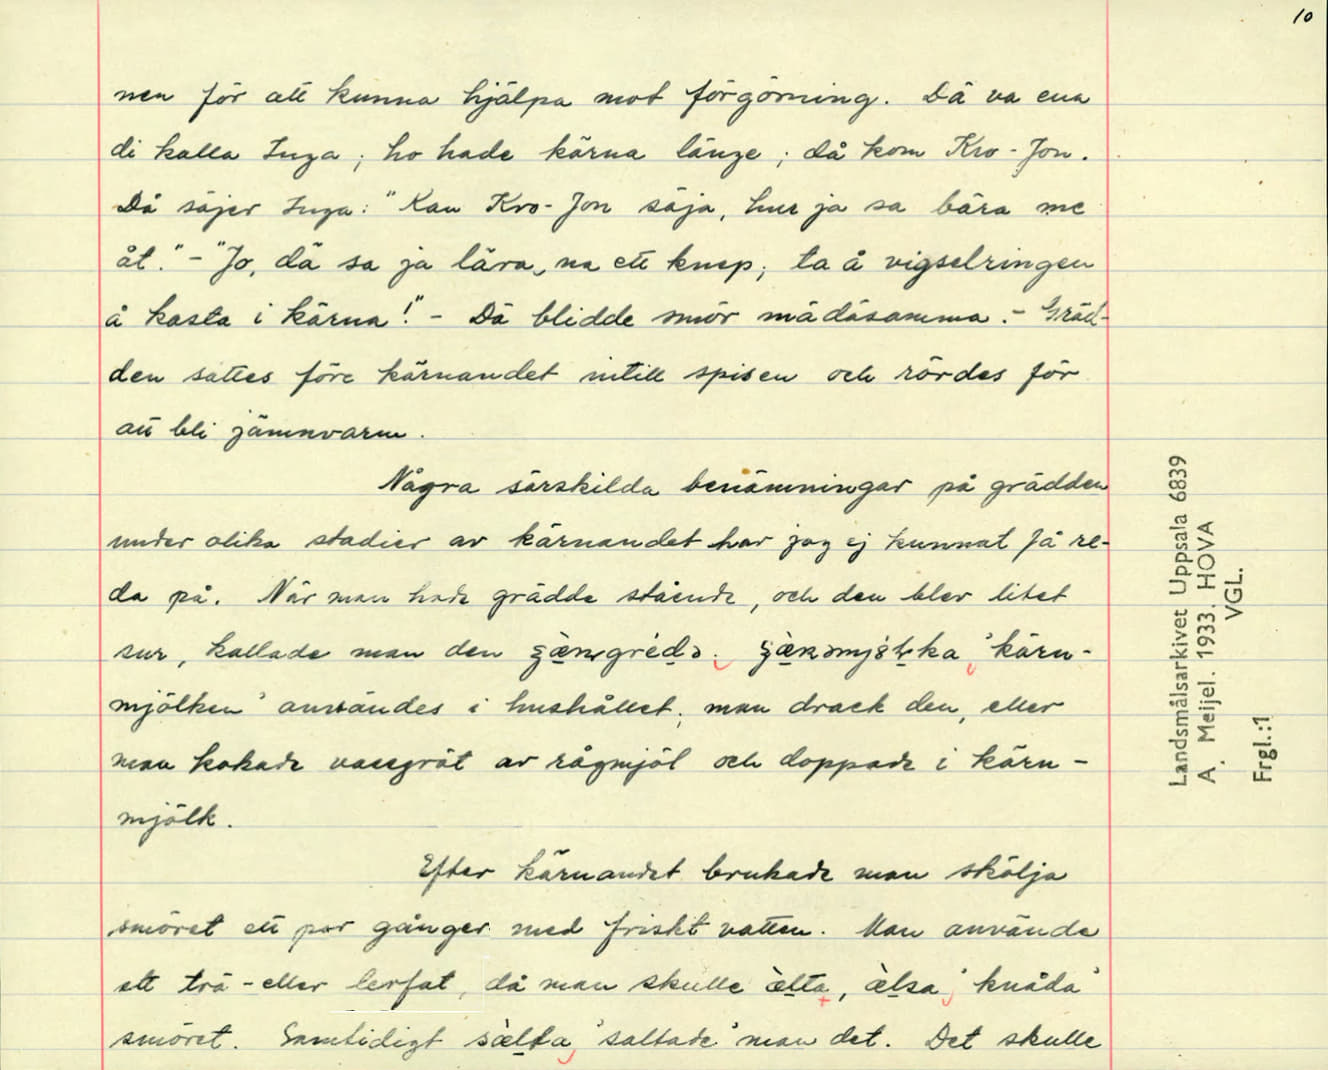 10
nen för att kunna hjälpa mot förgörning. Dä va ena
di kalla Inga; ho hade kärna länge; då kom Kro-Jon.
Då säjer Inga: "Kan Kro-Jon säja, hur ja sa bära me
åt." - "Jo, dä sa ja lära na ett knep; ta å vigselringen
å kasta i kärna!" - Dä blidde smör mädäsamma. - Gräd-
den sattes före kärnandet intill spisen och rördes för
att bli jämnvarm.
Några särskilda benämningar på grädden
under olika stadier av kärnandet har jag ej kunnat få re-
da på. När man hade grädde stående, och den blev litet
sur, kallade man den 'kärn-
mjölken' användes i hushållet; man drack den, eller
man kokade vassgröt av rågmjöl och doppade i kärn-
mjölk.
Efter kärnandet brukade man skölja
smöret ett par gånger med friskt vatten. Man använde
ett trä- eller lerfat, då man skulle æ̀lta, æ̀lsa 'knåda'
smöret. Samtidigt sæ̀lta 'saltade' man det. Det skulle
Landsmålsarkivet Uppsala 6839
A. Meijel. 1933. HOVA
VGL.
Frgl.:1